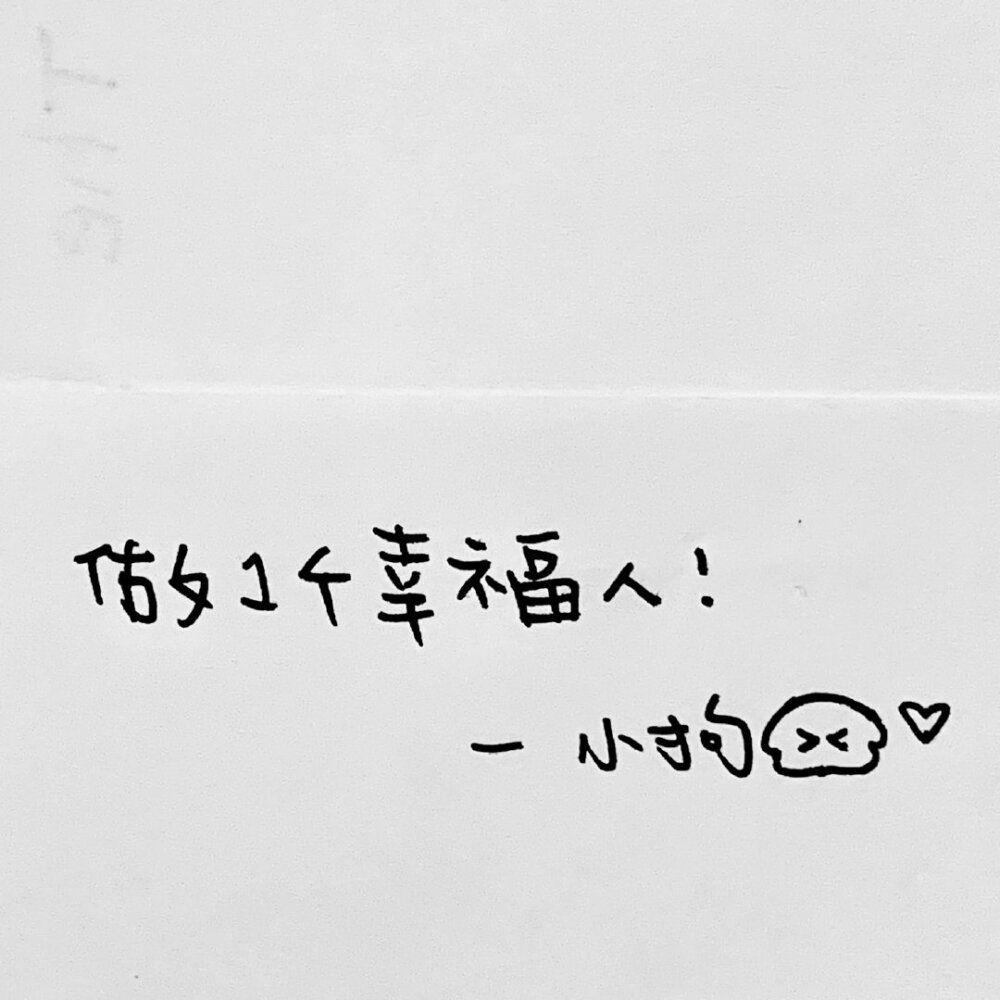 做1个幸福人！
— 小狗